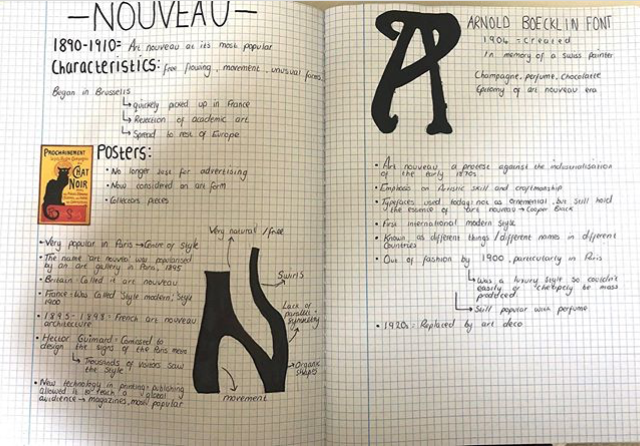 —NOUVEAU—
1890-1910= Art nouveau at its most popular
Characteristics: free flowing, movement, unusual forms
Began in Brussells
↳ quickly picked up in France
↳ Rejection of academic art
↳ Spread to rest of Europe
PROCHAINEMENT
CHAT
NOIR
Posters:
• No longer just for advertising
• Now considered an art form
• Collectors pieces
Very natural / free
• Very popular in Paris → Centre of Style
• The name 'art nouveau' was popularised
by an art gallery in Paris, 1895
• Britain: Called it art nouveau
• France: Was called 'Style modern', 'Style
1900'
• 1895-1898: French art nouveau
architecture
• Hector Guimard: Comissed to
design the signs of the Paris metro
↳ Thousands of visitors saw
the style!
• New technology in printing + publishing
allowed it to reach a global
audience → magazines, most popular
Swirls
Lack of
parallels +
symmetry
→ Organic
shapes
movement
A
ARNOLD BOECKLIN FONT
1904 = Created
In memory of a Swiss painter
Champagne, perfume, Chocolate
Epitomy of art nouveau era
• Art nouveau, a protest against the industrialisation
of the early
• Emphasis on Artistic skill and craftmanship
• Typefaces used today: not as ornemental, but still hold
the essence of 'art nouveau' → Cooper Black
• First international modern style
• Known as different things / different names in different
countries
• Out of fashion by 1900, particurarly in Paris
↳ Was a luxury style so couldn't
easily or cheaply be mass
produced
↳ Still popular with perfume
• 1920s: Replaced by art deco